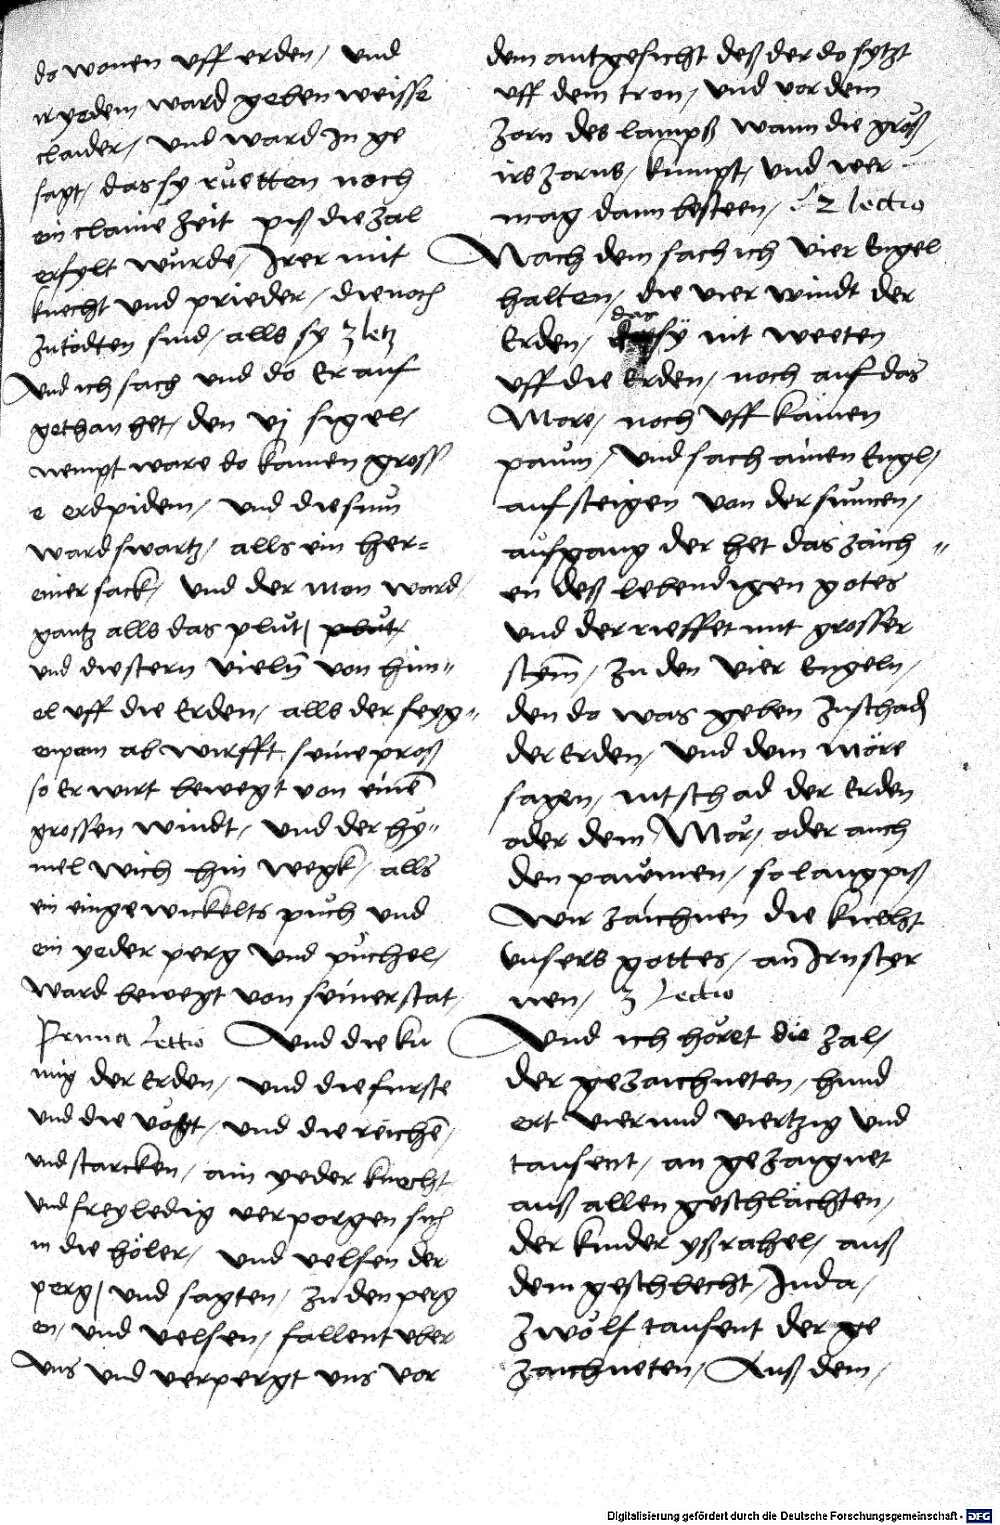 do wonen uff erden / und
ir yedem ward geben weisse
claider / und ward In ge
sagt / das sy ruetten noch
ein claine zeit piß die zal
erfylt wurde / Irer mit
knecht und prieder / die noch
zu tödten sind / alls sy z letz
Und ich sach und do Er auf
gethan het / den vj sigel /
nempt ware do kamen gross
e erdpidem / und die sunn
ward swartz / alls ein her=
einer sack / und der mon ward /
gantz alls das plůt / plůt /
und die stern vieln̄ von him"
el uff die Erden / alls der feyg"
enpam ab wirfft / seine proß
so Er wirt bewegt von einē
grossen windt / und der hy"
mel wich hin wegk / alls
ein eingewickelts půch und
ein yeder perg und půchel /
ward bewegt von seiner stat /
Prima Lectio Und die ku
nig der Erden / und die furste
und die vögt / und die reichē /
und starcken / ain yeder knecht
und frey ledig verporgen sich
in die höler / und velsen der
perg / und sagten / zu den perg
en / und velsen / fallent uber
uns und verpergt uns vor
dem antgesicht deß der do sytzt
uff dem tron / und vor dem
zorn des lampß wann die groß
irs zorns / kumpt / und wer
mag dann besteen / 2 lectio
Nach dem sach ich vier Engel
halten / die vier windt der
Erden / das sÿ nit weeten
uff die Erden / noch auf das
More / noch uff kainen
paum / und sach ainen Engl /
auf steigen von der sunnen /
aufgang der het das zaich "
en deß lebendigen gotes
und der rieffet mit grosser
stym̄ / zu den vier Engeln /
den do was geben zu schad
der Erden / und dem möre
sagen / nit schad der Erden
oder dem Mör / oder auch
den paumen / so lang piß
wir zaichnen die knecht
unsers gottes / an Irn styr
nen / 3 Lectio
Und ich höret die zal /
der gezaichneten / hund
ert vierund viertzig und
tausent / an gezaignet
auß allen geschlächten /
der kinder yßrahel / auß
dem geschlecht / Juda /
zwölf tausent der ge
zaichneten / Auß dem /
Digitalisierung gefördert durch die Deutsche Forschungsgemeinschaft - DFG